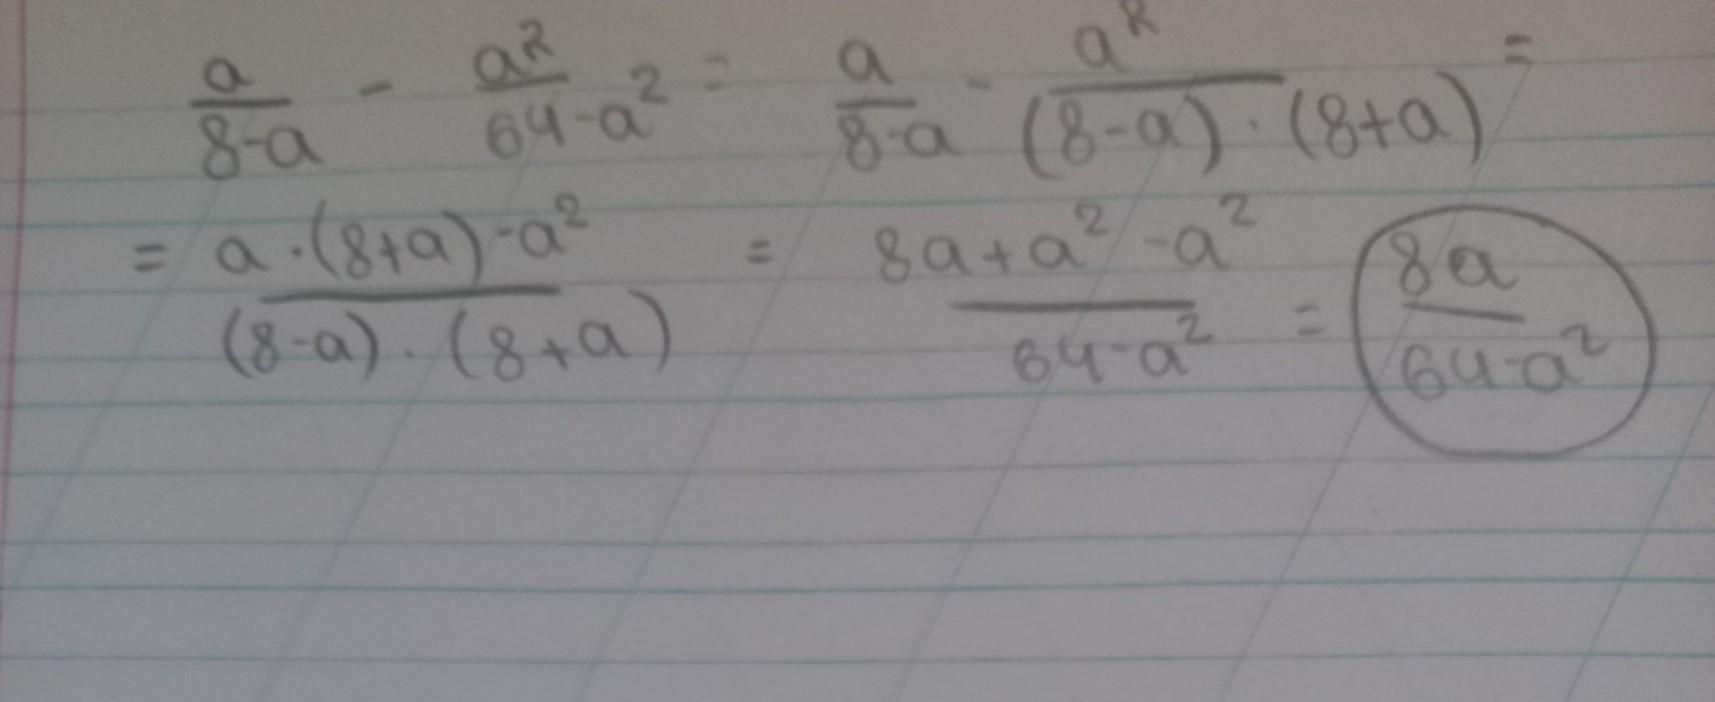 a/(8-a) - a²/(64-a²) = a/(8-a) - a²/((8-a)·(8+a)) =
= (a·(8+a)-a²)/((8-a)·(8+a)) = (8a+a²-a²)/(64-a²) = 8a/(64-a²)